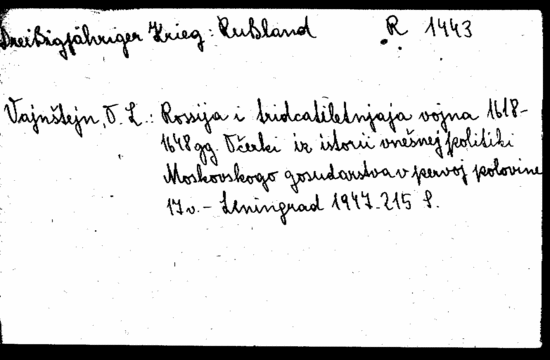 Dreißigjähriger Krieg: Rußland R 1443
Vajnštejn, O. L.: Rossija i tridcatiletnjaja vojna 1618-
1648 gg. Očerki iz istorii vnešnej politiki
Moskovskogo gosudarstva v pervoj polovine
17 v. - Leningrad 1947. 215 S.